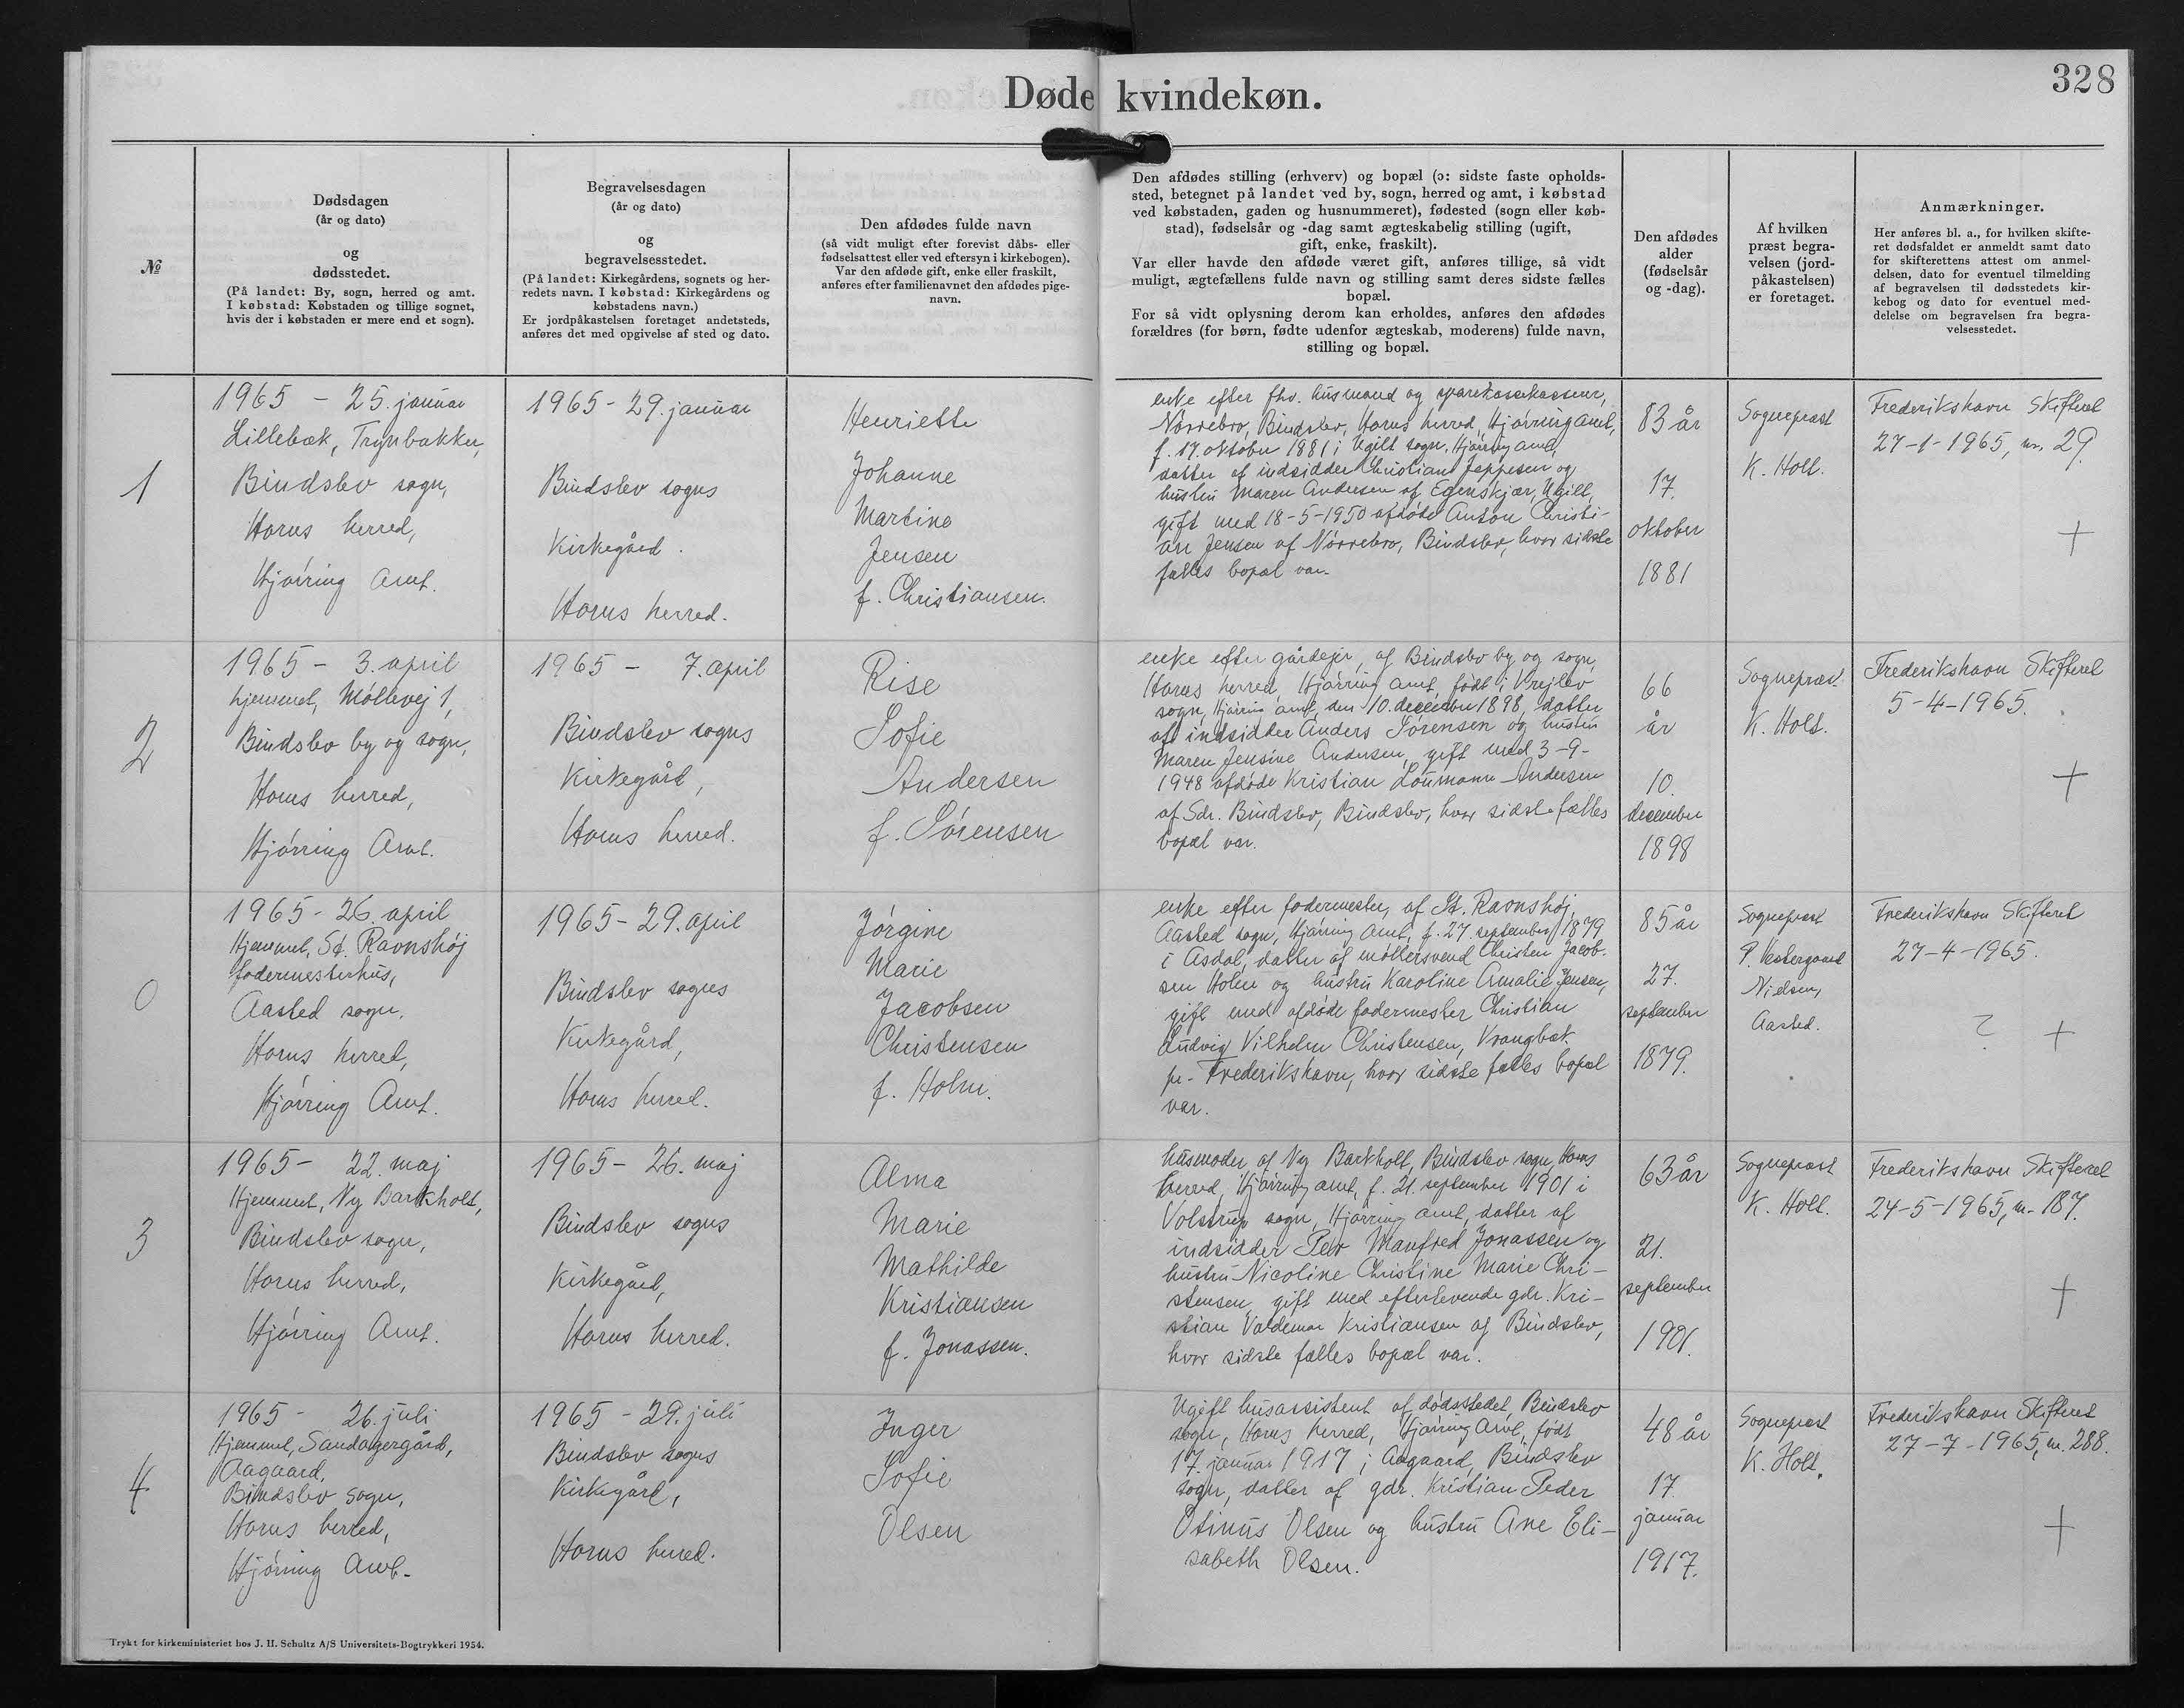 Døde kvindekøn.
328
№
Dødsdagen
(år og dato)
og
dødsstedet.
(På landet: By, sogn, herred og amt.
I købstad: Købstaden og tillige sognet,
hvis der i købstaden er mere end et sogn).
Begravelsesdagen
(år og dato)
og
begravelsesstedet.
(På landet: Kirkegårdens, sognets og her-
redets navn. I købstad: Kirkegårdens og
købstadens navn.)
Er jordpåkastelsen foretaget andetsteds,
anføres det med opgivelse af sted og dato.
Den afdødes fulde navn
(så vidt muligt efter forevist dåbs- eller
fødselsattest eller ved eftersyn i kirkebogen).
Var den afdøde gift, enke eller fraskilt,
anføres efter familienavnet den afdødes pige-
navn.
Den afdødes stilling (erhverv) og bopæl (ɔ: sidste faste opholds-
sted, betegnet på landet ved by, sogn, herred og amt, i købstad
ved købstaden, gaden og husnummeret), fødested (sogn eller køb-
stad), fødselsår og -dag samt ægteskabelig stilling (ugift,
gift, enke, fraskilt).
Var eller havde den afdøde været gift, anføres tillige, så vidt
muligt, ægtefællens fulde navn og stilling samt deres sidste fælles
bopæl.
For så vidt oplysning derom kan erholdes, anføres den afdødes
forældres (for børn, fødte udenfor ægteskab, moderens) fulde navn,
stilling og bopæl.
Den afdødes
alder
(fødselsår
og -dag).
Af hvilken
præst begra-
velsen (jord-
påkastelsen)
er foretaget.
Anmærkninger.
Her anføres bl. a., for hvilken skifte-
ret dødsfaldet er anmeldt samt dato
for skifterettens attest om anmel-
delsen, dato for eventuel tilmelding
af begravelsen til dødsstedets kir-
kebog og dato for eventuel med-
delelse om begravelsen fra begra-
velsesstedet.
1
1965 - 25. januar
Lillebæk, Trynbakker,
Bindslev sogn,
Horns herred,
Hjørring Amt.
1965 - 29. januar
Bindslev sogns
Kirkegård.
Horns herred.
Henriette
Johanne
Martine
Jensen
f. Christiansen.
enke efter fhv. husmand og sparekassekasserer,
Nørrebro, Bindslev, Horns herred, Hjørring amt,
f. 17. oktober 1881 i Ugilt sogn, Hjørring amt,
datter af indsidder Christian Jeppesen og
hustru Maren Andersen af Egenskjær, Ugilt,
gift med 18-5-1950 afdøde Anton Christi-
an Jensen af Nørrebro, Bindslev, hvor sidste
fælles bopæl var.
83 år
17.
oktober
1881
Sognepræst
K. Holt.
Frederikshavn Skifteret
27-1-1965, nr. 29.
+
2
1965 - 3. april
hjemmet, Møllevej 1,
Bindslev by og sogn,
Horns herred,
Hjørring Amt.
1965 - 7. april
Bindslev sogns
Kirkegård,
Horns herred.
Rise
Sofie
Andersen
f. Sørensen
enke efter gårdejer, af Bindslev by og sogn,
Horns herred, Hjørring amt, født i Vrejlev
sogn, Hjørring amt, den 10. december 1898, datter
af indsidder Anders Sørensen og hustru
Maren Jensine Andersen, gift med 3-9-
1948 afdøde Kristian Loumann Andersen
af Sdr. Bindslev, Bindslev, hvor sidste fælles
bopæl var.
66
år
10.
december
1898
Sognepræst
K. Holt.
Frederikshavn Skifteret
5-4-1965.
+
0
1965 - 26. april
Hjemmet, St. Ravnshøj
fodermesterhus,
Aasted sogn,
Horns herred,
Hjørring Amt.
1965 - 29. april
Bindslev sogns
Kirkegård,
Horns herred.
Jørgine
Marie
Jacobsen
Christensen
f. Holm.
enke efter fodermester, af St. Ravnshøj,
Aasted sogn, Hjørring Amt, f. 27. september 1879
i Asdal, datter af møllersvend Christen Jacob-
sen Holm og hustru Karoline Amalie Jensen,
gift med afdøde fodermester Christian
Ludvig Vilhelm Christensen, Vrangbæk
pr. Frederikshavn, hvor sidste fælles bopæl
var.
85 år
27.
september
1879.
Sognepræst
P. Vestergaard
Nielsen,
Aasted.
Frederikshavn Skifteret
27-4-1965.
? +
3
1965 - 22. maj
Hjemmet, Ny Barkholt,
Bindslev sogn,
Horns herred,
Hjørring Amt.
1965 - 26. maj
Bindslev sogns
Kirkegård,
Horns herred.
Alma
Marie
Mathilde
Kristiansen
f. Jonassen.
husmoder af Ny Barkholt, Bindslev sogn, Horns
herred, Hjørring amt, f. 21. september 1901 i
Volstrup sogn, Hjørring amt, datter af
indsidder Peter Manfred Jonassen og
hustru Nicoline Christine Marie Chri-
stensen, gift med efterlevende gdr. Kri-
stian Valdemar Kristiansen af Bindslev,
hvor sidste fælles bopæl var.
63 år
21.
september
1901.
Sognepræst
K. Holt.
Frederikshavn Skifteret
24-5-1965, nr. 187.
+
4
1965 - 26. juli
Hjemmet, Sandagergård,
Aagaard,
Bindslev sogn,
Horns herred,
Hjørring Amt.
1965 - 29. juli
Bindslev sogns
Kirkegård,
Horns herred.
Inger
Sofie
Olsen
Ugift husassistent af dødsstedet, Bindslev
sogn, Horns herred, Hjørring Amt, født
17. januar 1917 i Aagaard, Bindslev
sogn, datter af gdr. Kristian Peder
Otinus Olsen og hustru Ane Eli-
sabeth Olsen.
48 år
17.
januar
1917.
Sognepræst
K. Holt.
Frederikshavn Skifteret
27-7-1965, nr. 288.
+
Trykt for kirkeministeriet hos J. H. Schultz A/S Universitets-Bogtrykkeri 1954.